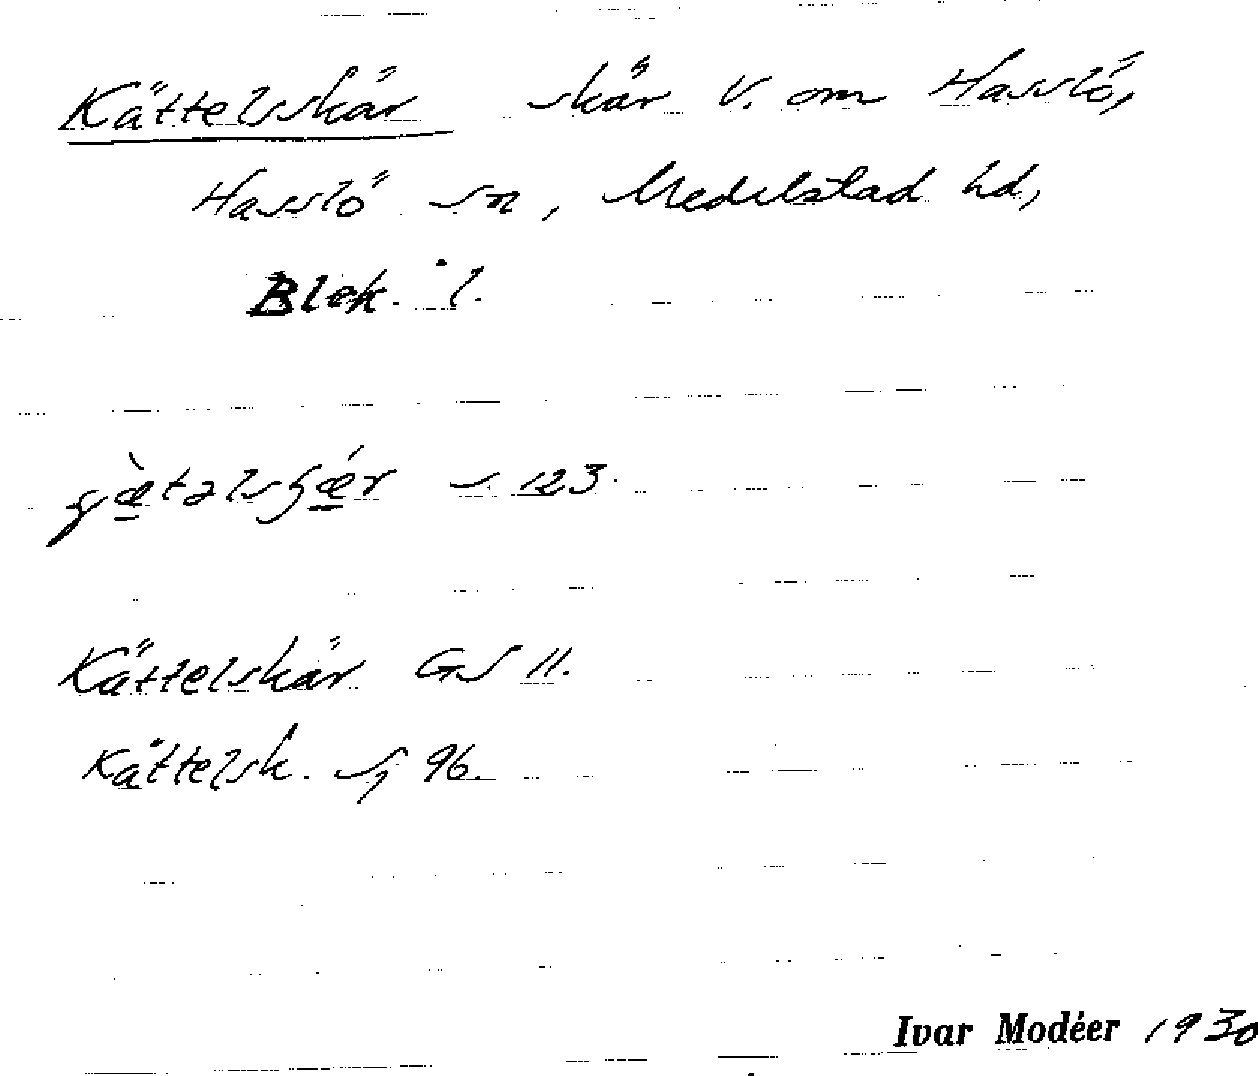 Kättelskär skär V. om Hasslö,
Hasslö sn, Medelstad hd,
Blek. l.
s. 123.
Kättelskär GS 11.
Kättelsk. 96.
Ivar Modéer 1930